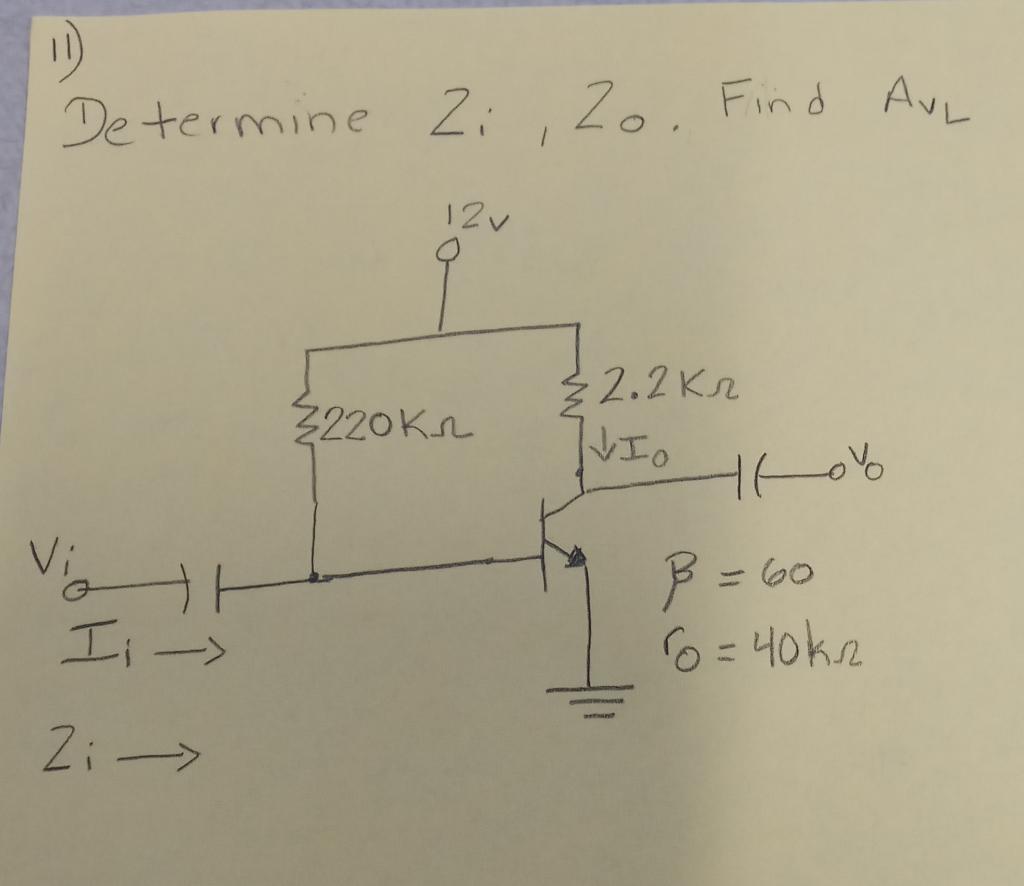 11)
Determine Zi , Zo. Find AvL
12v
2.2KΩ
220KΩ
↓Io
Vo
Vi
β = 60
Ii →
ro = 40kΩ
Zi →